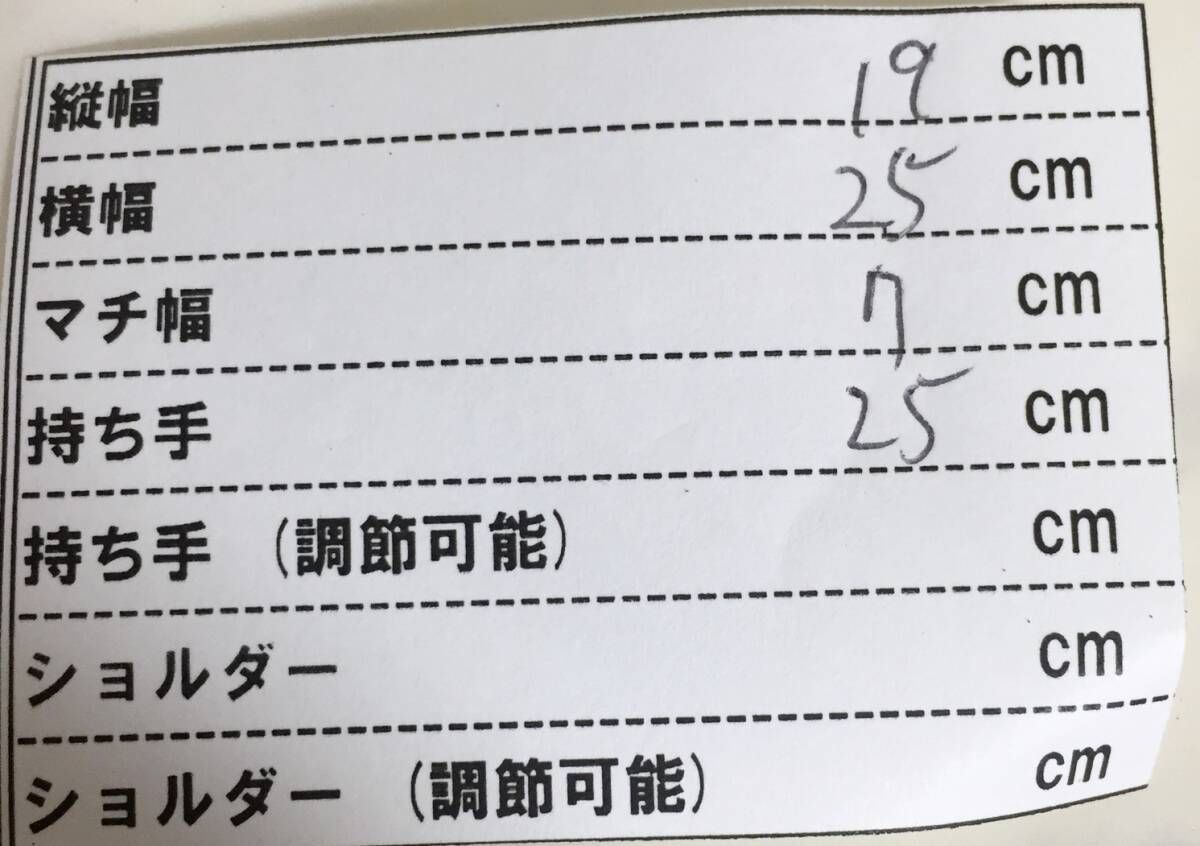 縦幅 19 cm
横幅 25 cm
マチ幅 7 cm
持ち手 25 cm
持ち手 (調節可能) cm
ショルダー cm
ショルダー (調節可能) cm